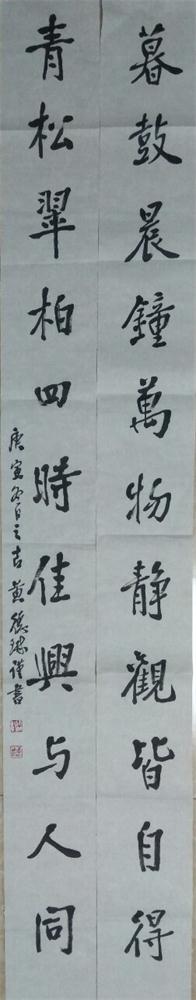 暮鼓晨鐘萬物静觀皆自得
青松翠柏四時佳興与人同
庚寅冬日之吉黄德瑞谨書